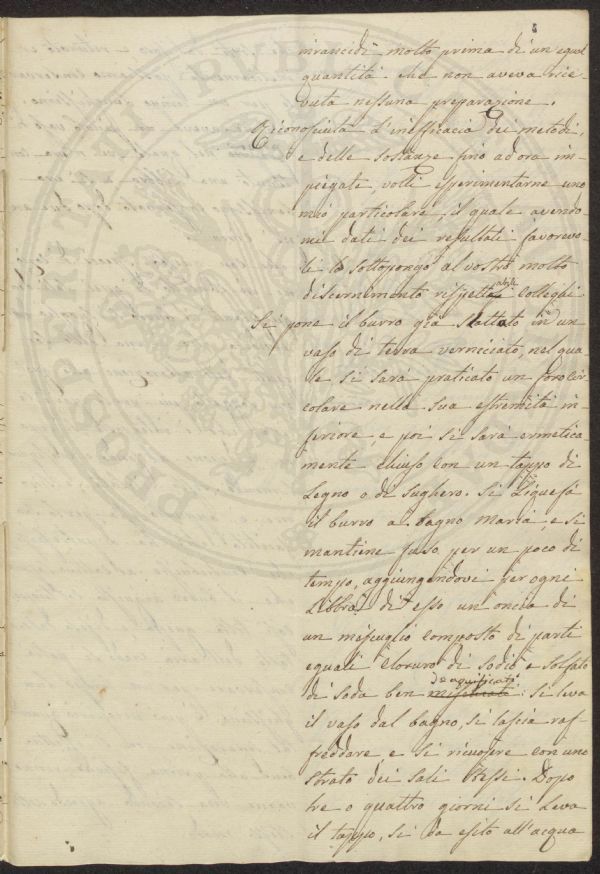 5
irrancidì molto prima di un egual
quantità che non aveva rice-
vuta nessuna preparazione.
Riconosciuta l'inefficacia dei metodi,
e delle sostanze fino ad ora im-
piegate, volli esperimentarne uno
mio particolare, il quale avendo-
mi dati dei resultati favorevo-
li lo sottopongo al vostro molto
discernimento rispettabili Colleghi
Si pone il burro già slattato in un
vaso di terra verniciato, nel qua-
le si sarà praticato un foro cir-
colare nella sua estremità in-
feriore, e poi si sarà ermetica-
mente chiuso con un tappo di
Legno o di sughero. Si liquefà
il burro a bagno Maria, e si
mantiene fuso per un poco di
tempo, aggiungendovi per ogni
Libbra di esso un oncia di
un miscuglio composto di parti
eguali Cloruro di sodio e solfato
di soda ben deaquificati: si leva
il vaso dal bagno, si lascia raf-
freddare e si ricuopre con uno
strato dei sali stessi. Dopo
tre o quattro giorni si leva
il tappo, si dà esito all'acqua
PROSPERITATI PVBLICAE